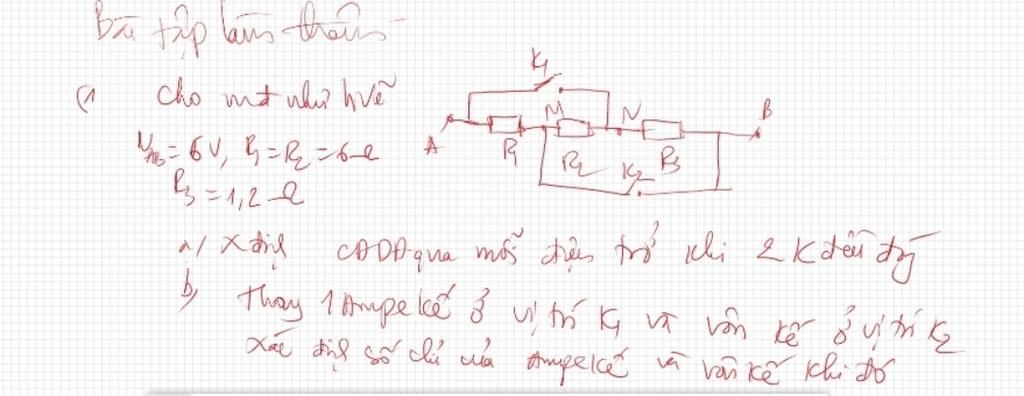 Bài tập làm thêm
1) Cho mđ như hvẽ
K1
M N B
A R1 R2 K2 R3
UAB = 6V, R1 = R2 = 6Ω
R3 = 1,2Ω
a/ Xđịnh CĐDĐ qua mỗi điện trở khi 2 K đều đg
b, Thay 1 Ampe kế ở vị trí K1 và vôn kế ở vị trí K2
Xác định số chỉ của Ampe kế và vôn kế khi đó